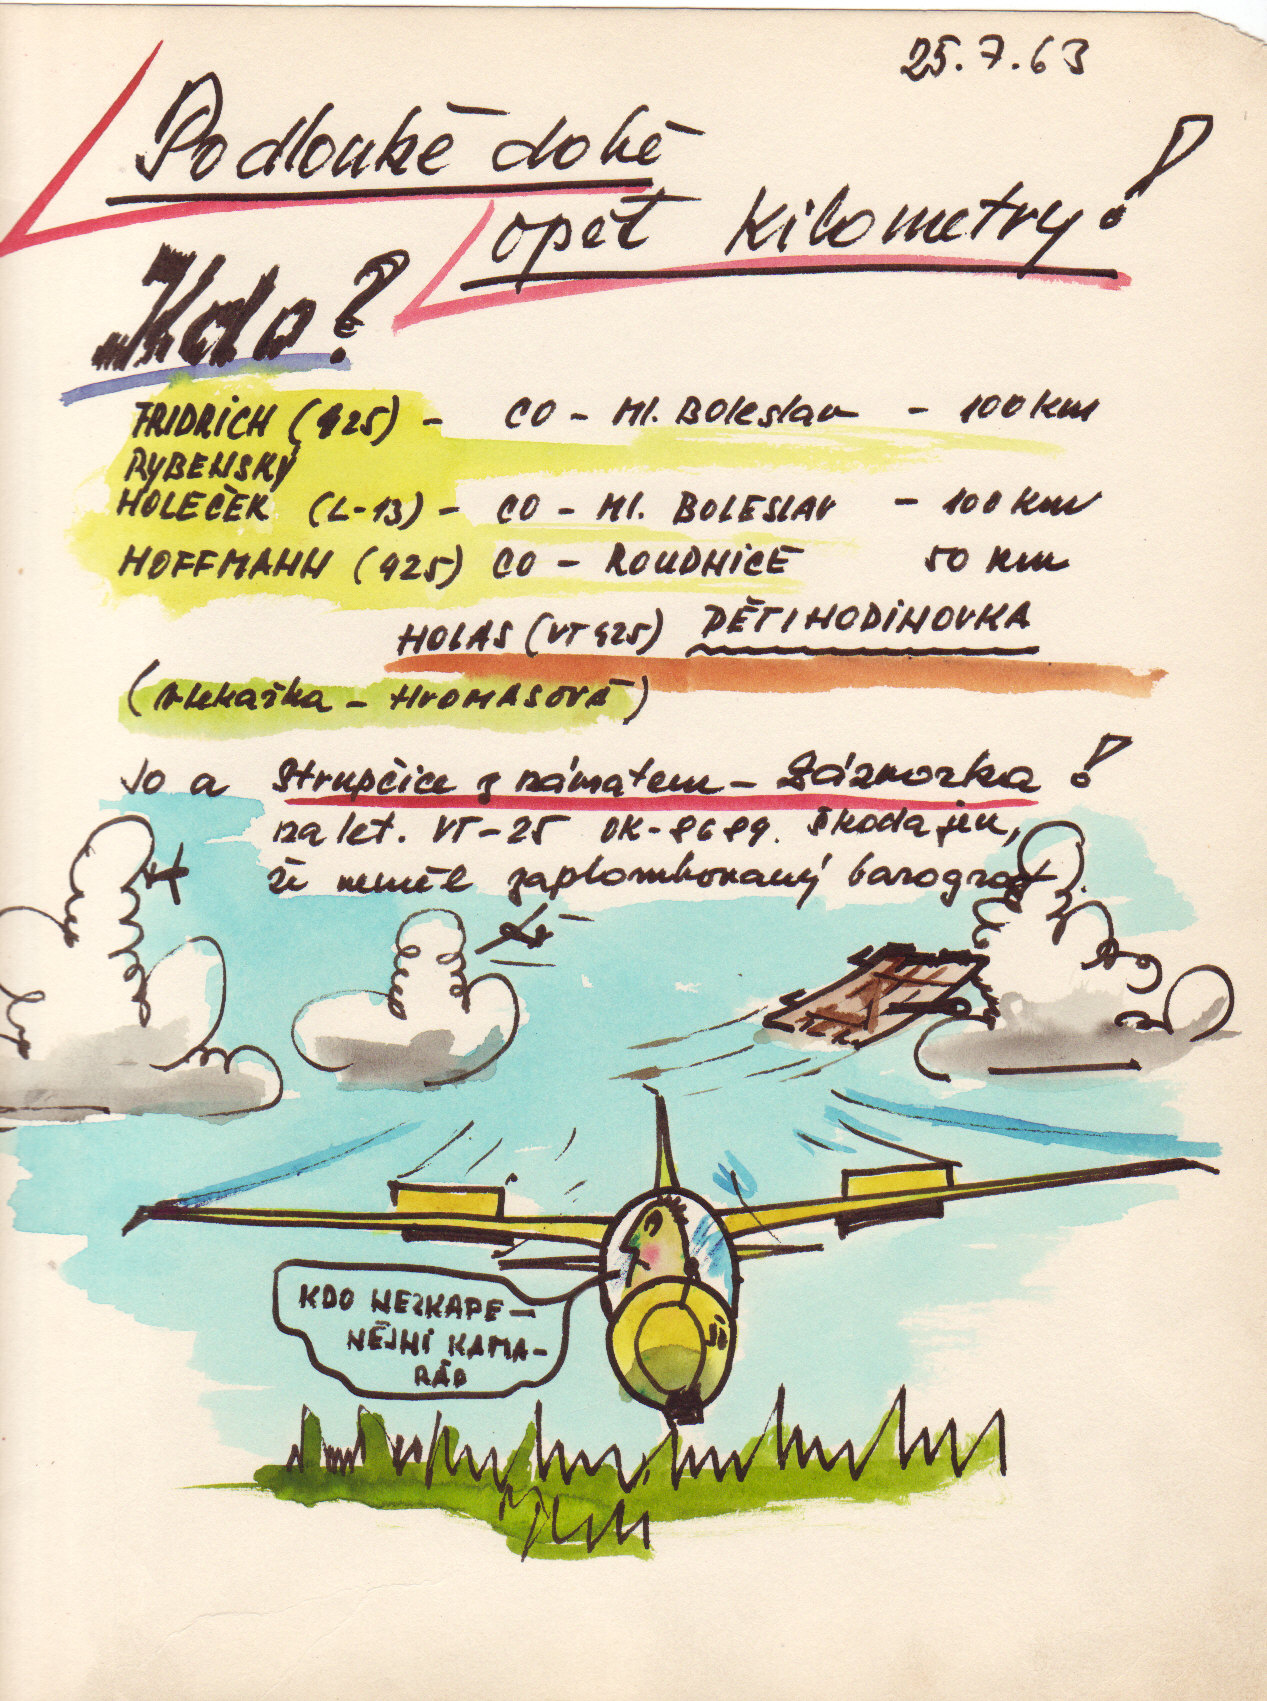 25.7.63
Po dlouhé době
opět kilometry!
Kdo?
FRIDRICH (425) - CO - Ml. Boleslav - 100 km
RYBENSKÝ
HOLEČEK (L-13) - CO - Ml. BOLESLAV - 100 km
HOFFMANN (425) CO - ROUDNICE 50 km
HOLAS (VT 425) PĚTIHODINOVKA
(vlekařka - HROMASOVÁ)
Jo a Strupčice z námatem - Záznorka!
na let. VT-25 OK-8689. Škoda jen,
že neměl zaplombovaný barograf).
KDO NEZKAPE-
NĚJNÍ KAMA-
RÁD